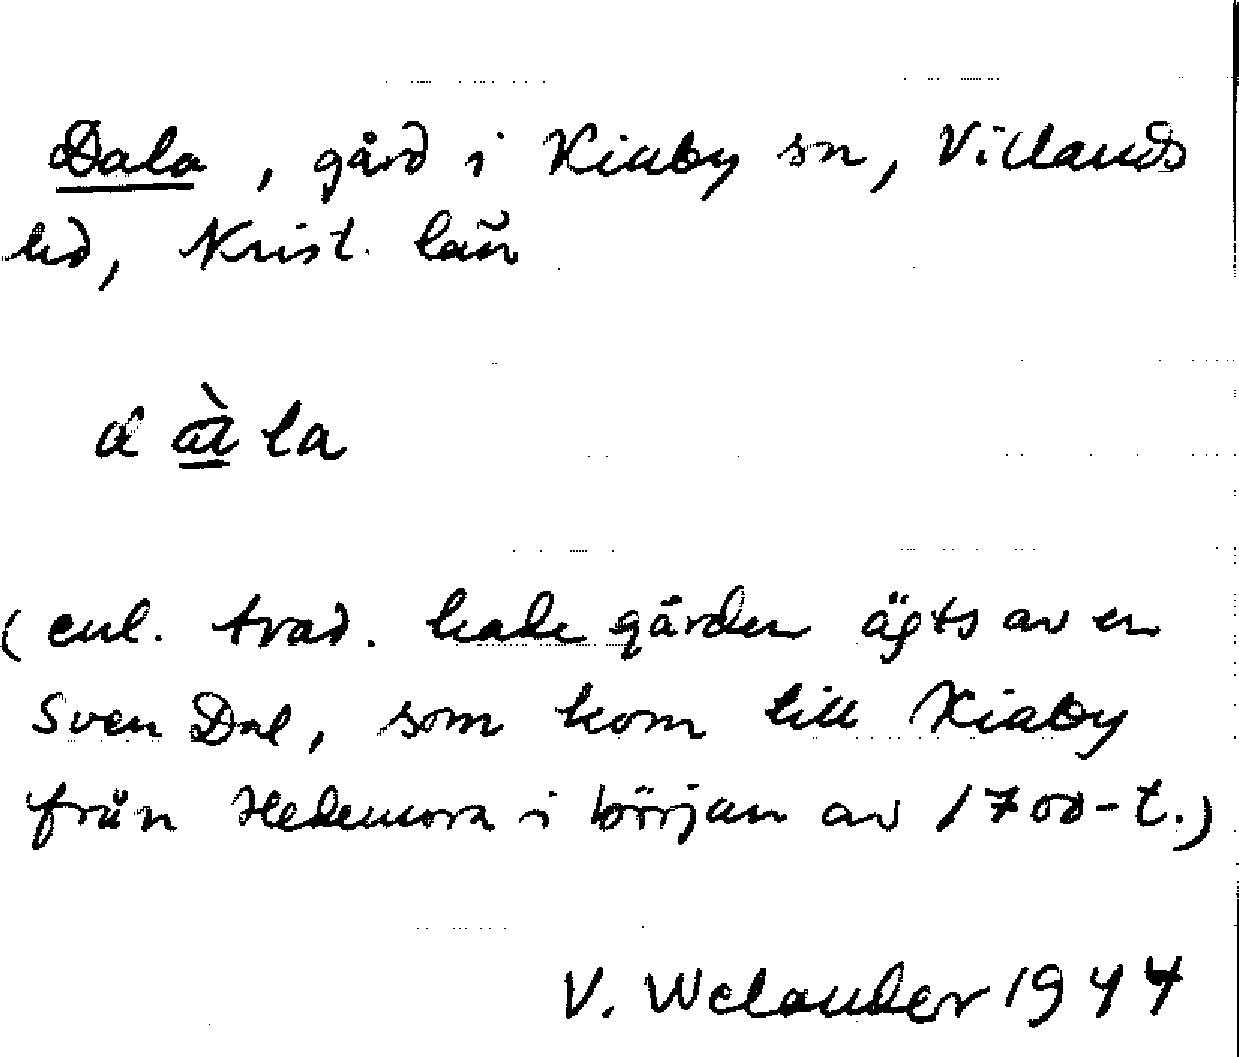 Dala, gård i Kiaby sn, Villands
hd, Krist. län
dàla
(enl. trad. hade gården ägts av en
Sven Dal, som kom till Kiaby
från Hedemora i början av 1700-t.)
V. Welander 1944